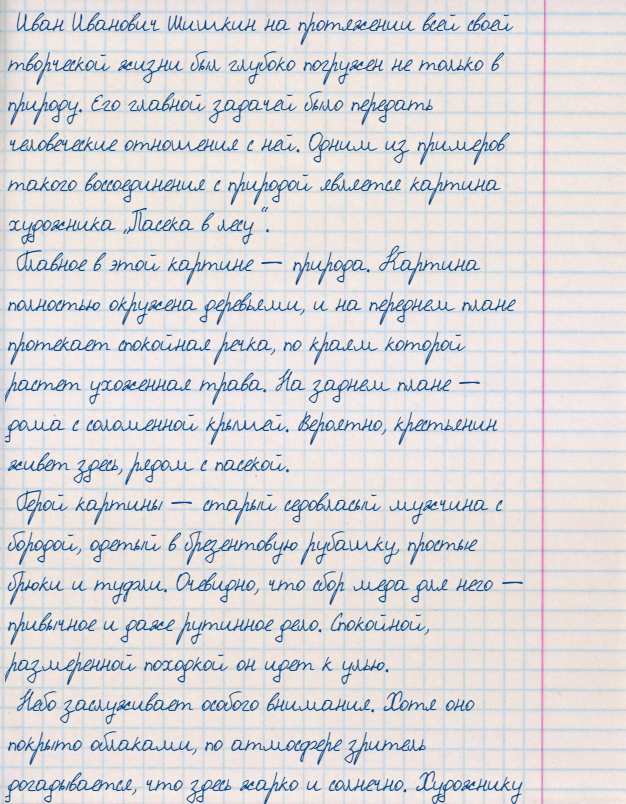 Иван Иванович Шишкин на протяжении всей своей
творческой жизни был глубоко погружен не только в
природу. Его главной задачей было передать
человеческие отношения с ней. Одним из примеров
такого воссоединения с природой является картина
художника „Пасека в лесу“.
Главное в этой картине — природа. Картина
полностью окружена деревьями, и на переднем плане
протекает спокойная речка, по краям которой
растет ухоженная трава. На заднем плане —
дома с соломенной крышей. Вероятно, крестьянин
живет здесь, рядом с пасекой.
Герой картины — старый седовласый мужчина с
бородой, одетый в брезентовую рубашку, простые
брюки и туфли. Очевидно, что сбор меда для него —
привычное и даже рутинное дело. Спокойной,
размеренной походкой он идет к улью.
Небо заслуживает особого внимания. Хотя оно
покрыто облаками, по атмосфере зритель
догадывается, что здесь жарко и солнечно. Художнику